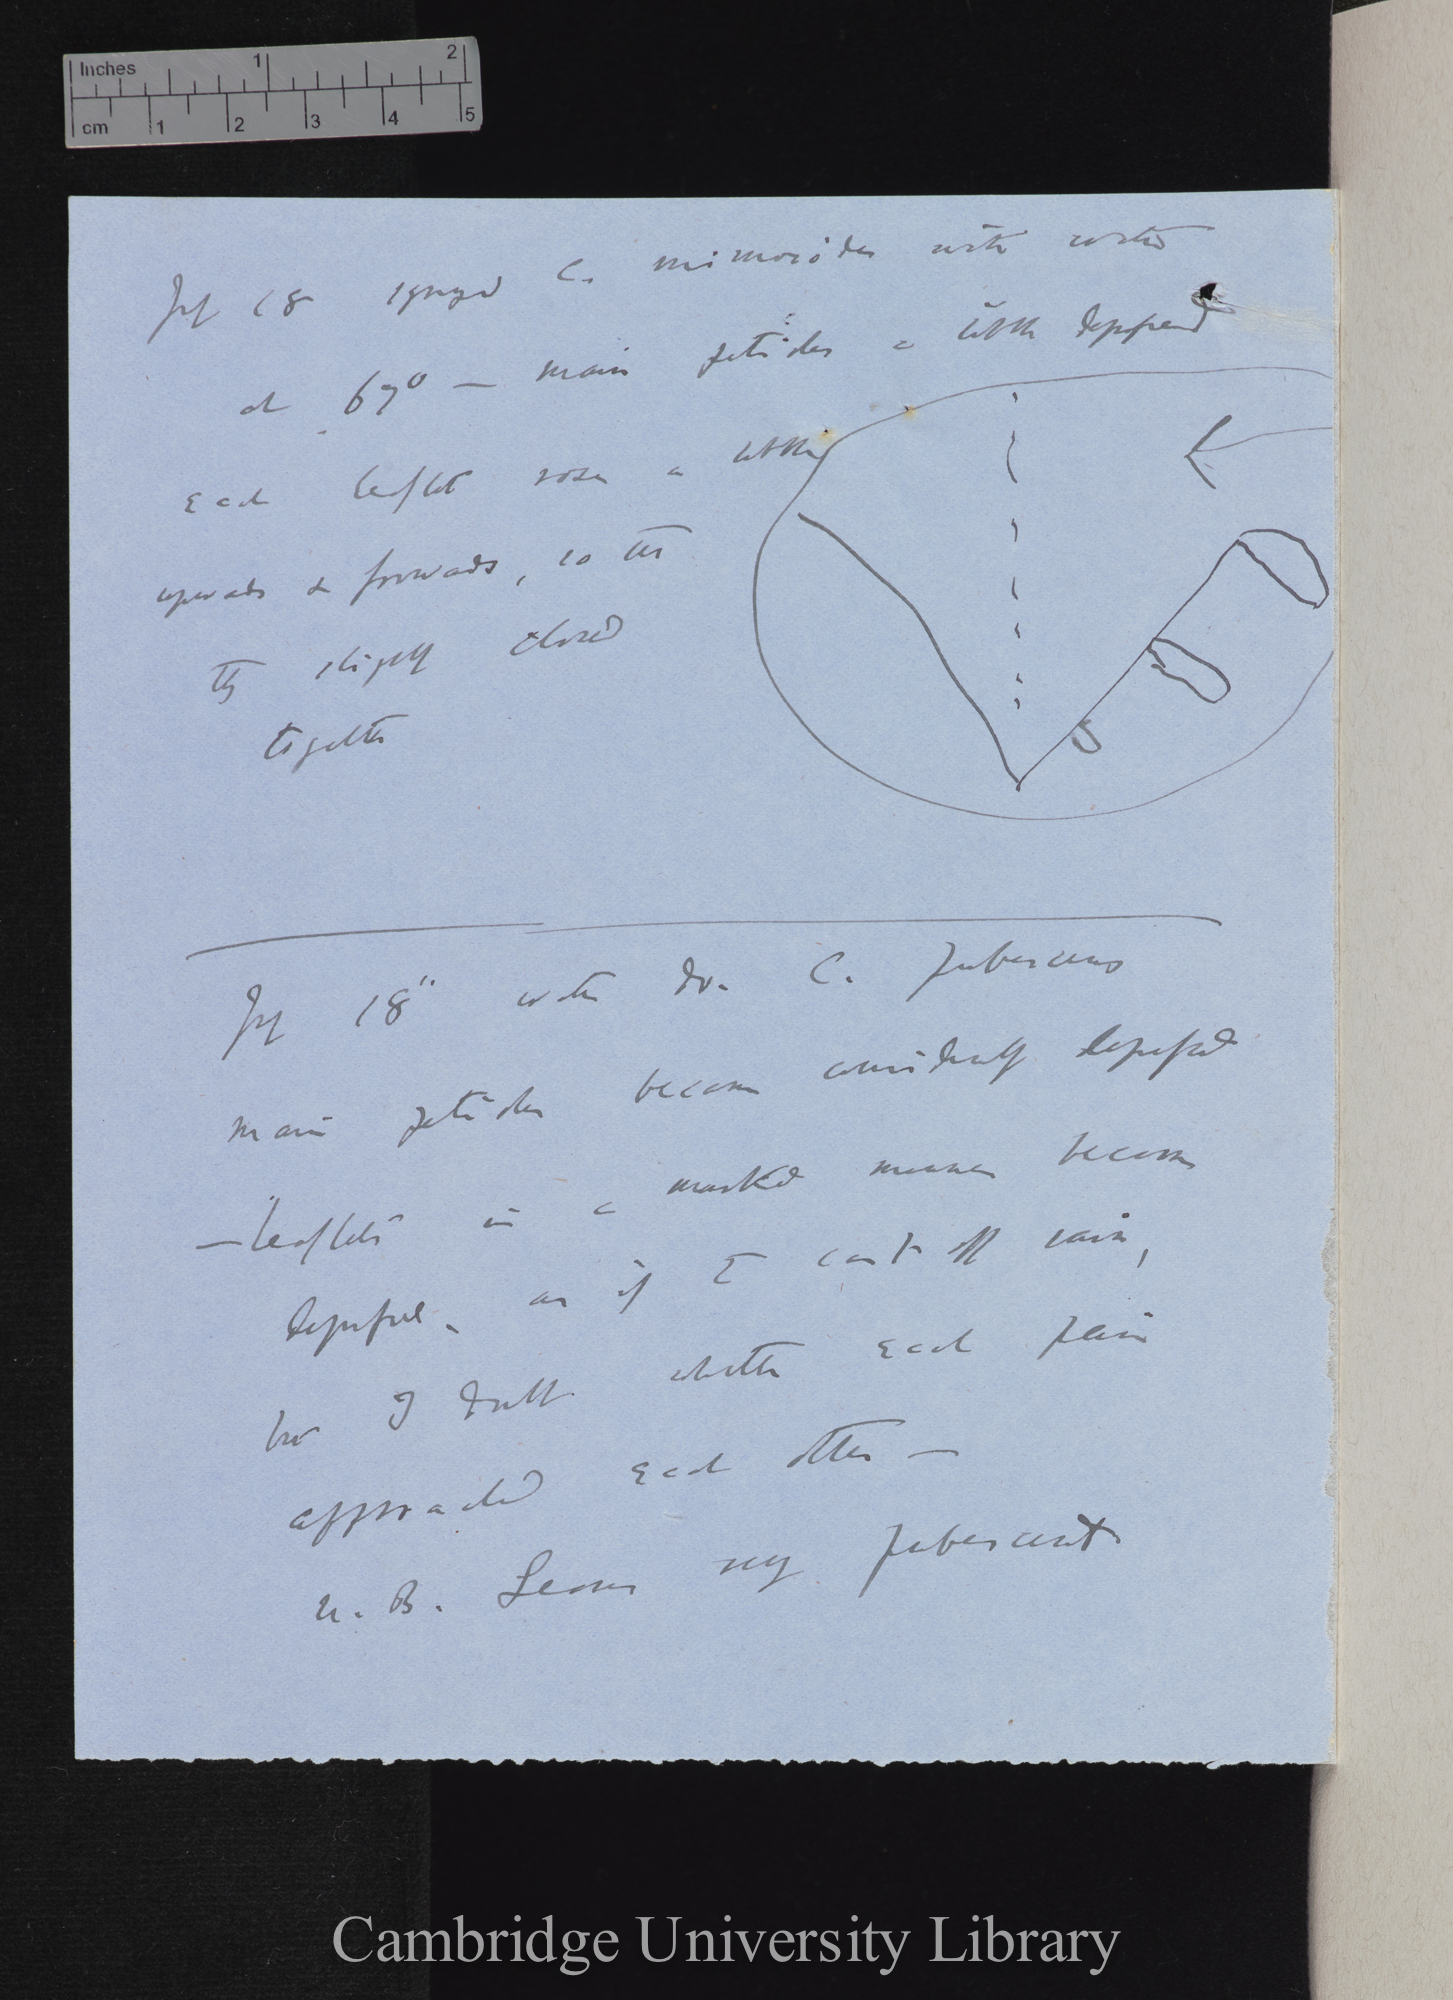 Inches 1 2
cm 1 2 3 4 5
July 18 syringed C. mimosoides with water
at 67° — main petioles a little depressed
Each leaflet rose a little
upwards & forwards, so that
they slightly closed
together
July 18" water do. C. pubescens
main petioles become considerably depressed
— leaflets in a marked manner become
depressed, as if to cast off rain,
but I doubt whether each pair
approached each other —
N.B. Leaves very pubescent
Cambridge University Library